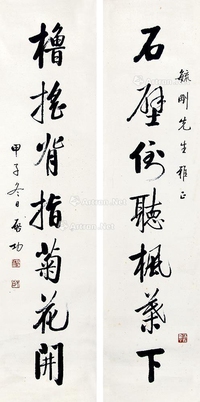 毓剛先生雅正
石壁倚聽楓葉下
櫓搖背指菊花開
甲子冬日 啓功